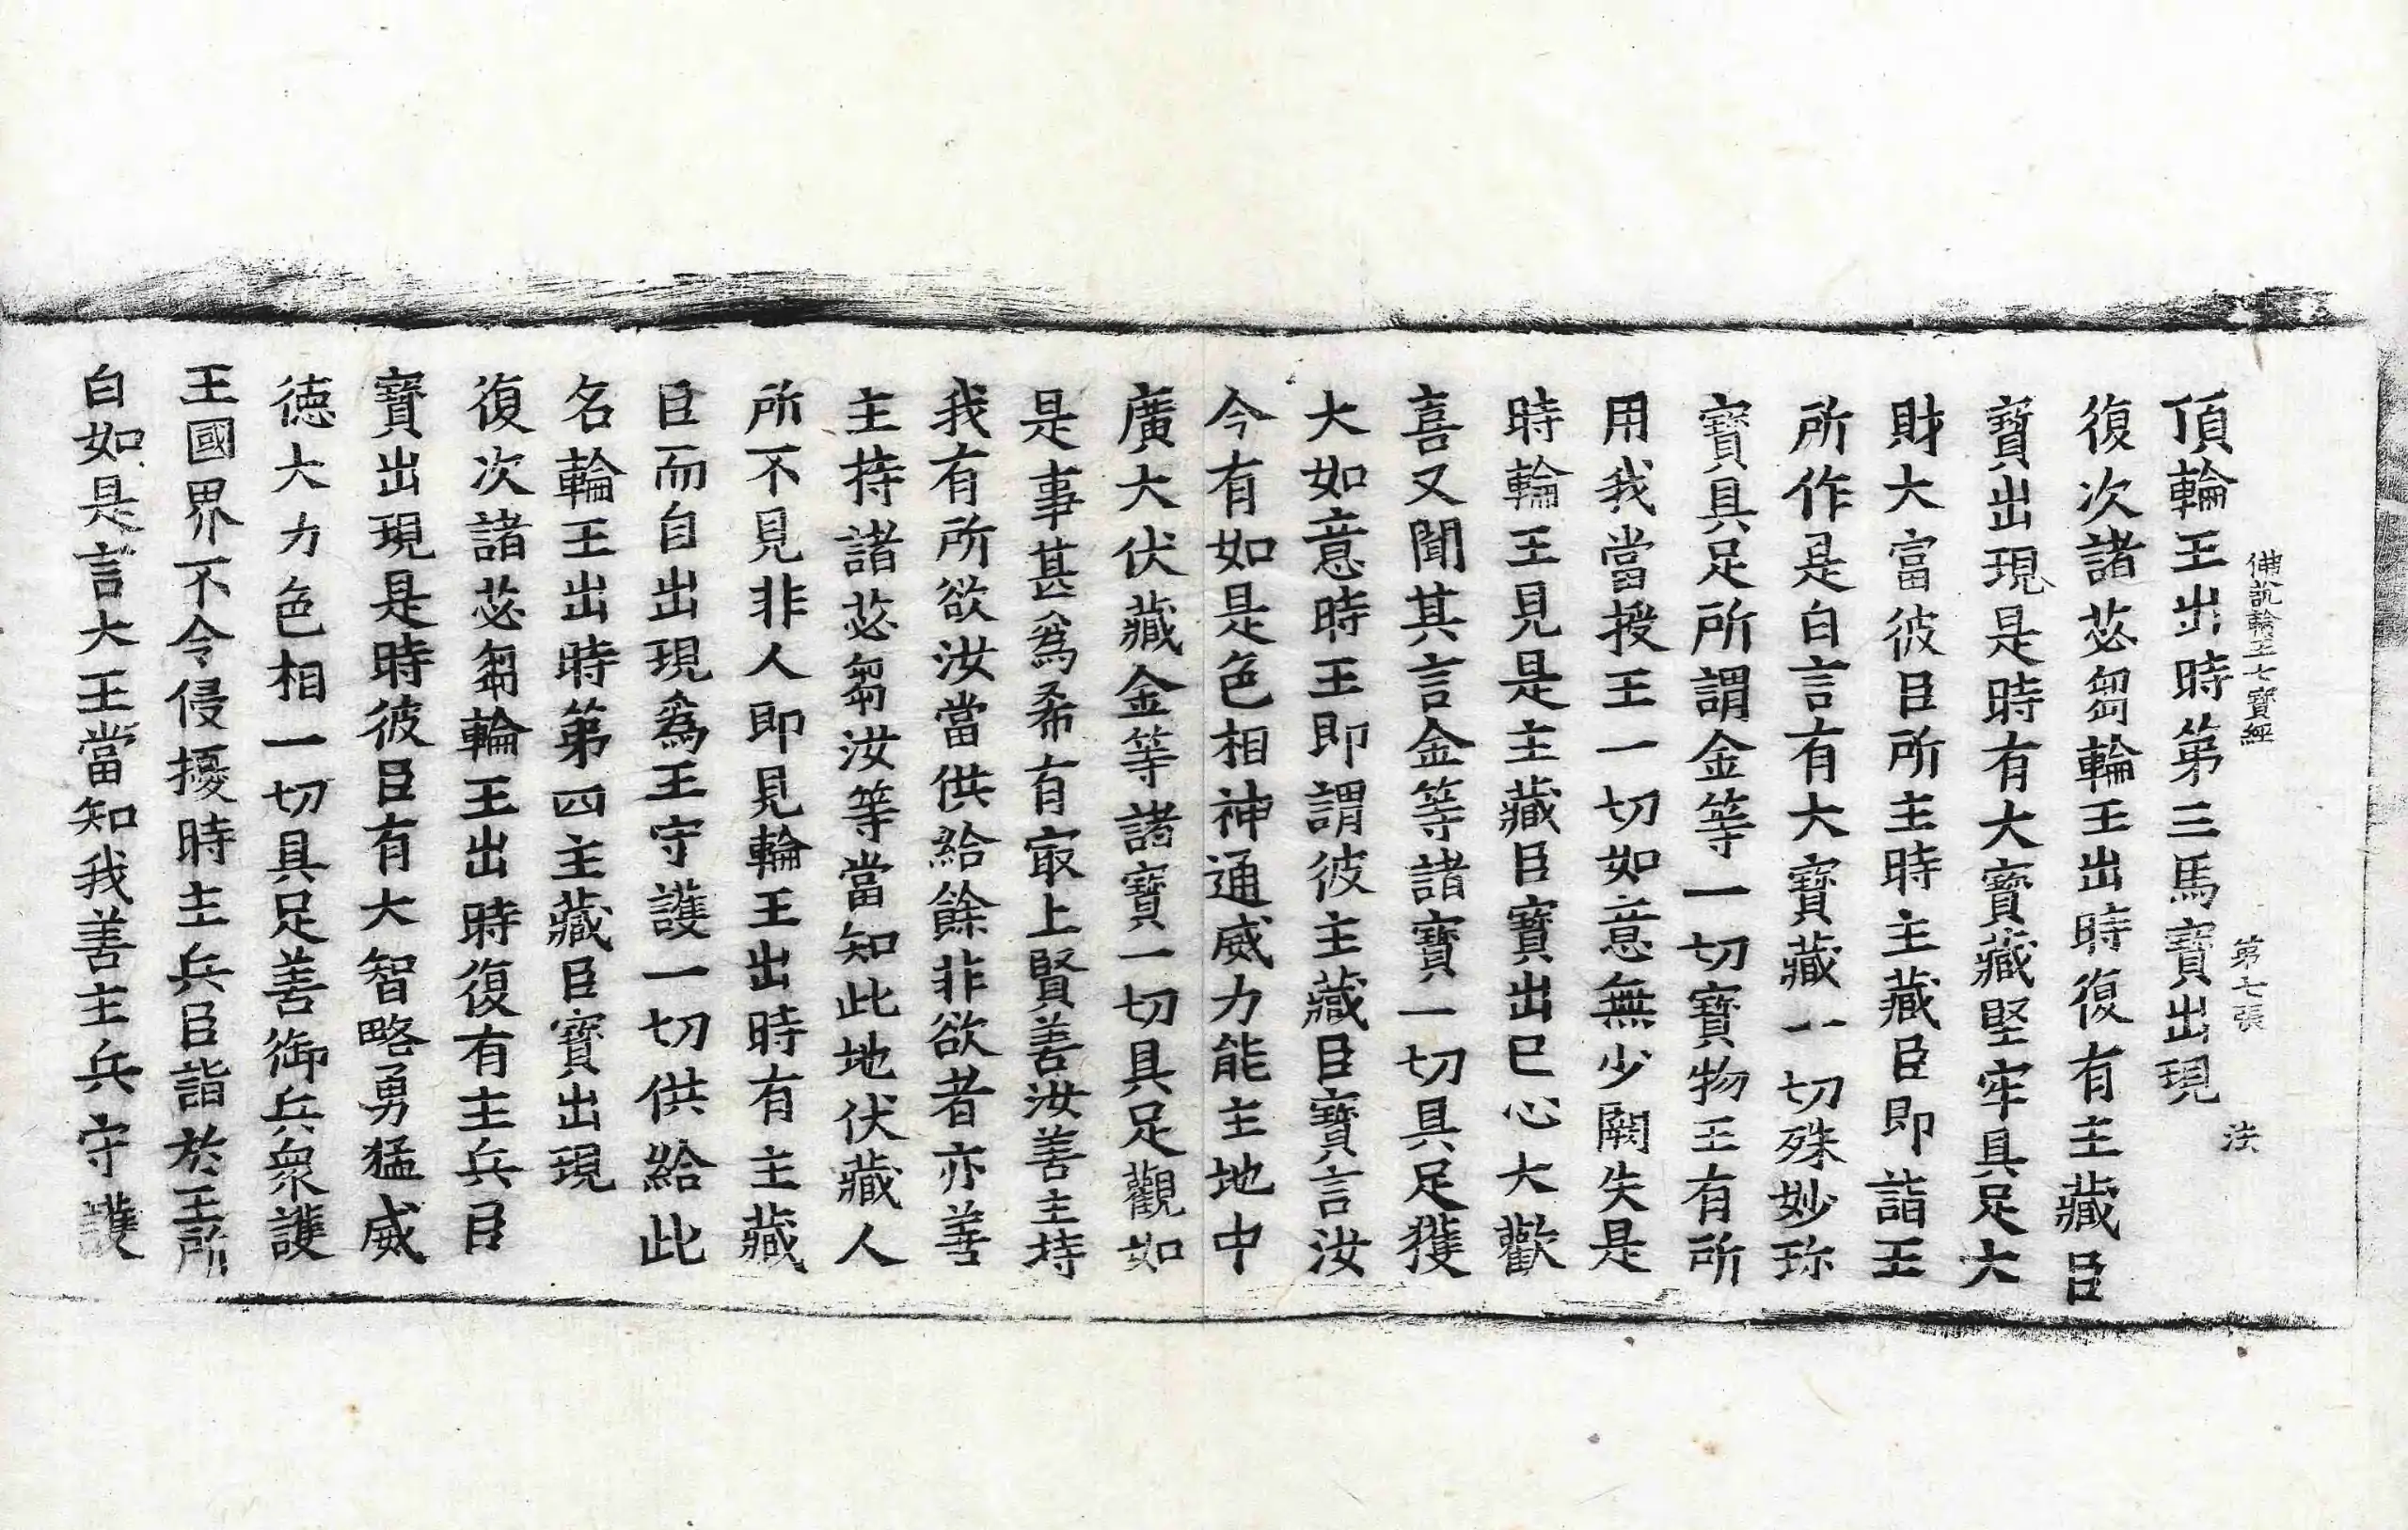 佛說輪王七寶經 第七張 法
頂輪王出時第三馬寶出現
復次諸苾芻輪王出時復有主藏臣
寶出現是時有大寶藏堅牢具足大
財大富彼臣所主時主藏臣即詣王
所作是白言有大寶藏一切殊妙珎
寶具足所謂金等一切寶物王有所
用我當授王一切如意無少闕失是
時輪王見是主藏臣寶出已心大歡
喜又聞其言金等諸寶一切具足獲
大如意時王即謂彼主藏臣寶言汝
今有如是色相神通威力能主地中
廣大伏藏金等諸寶一切具足觀如
是事甚爲希有㝡上賢善汝善主持
我有所欲汝當供給餘非欲者亦善
主持諸苾芻汝等當知此地伏藏人
所不見非人即見輪王出時有主藏
臣而自出現爲王守護一切供給此
名輪王出時第四主藏臣寶出現
復次諸苾芻輪王出時復有主兵臣
寶出現是時彼臣有大智略勇猛威
德大力色相一切具足善御兵衆護
王國界不令侵擾時主兵臣詣於王所
白如是言大王當知我善主兵守護